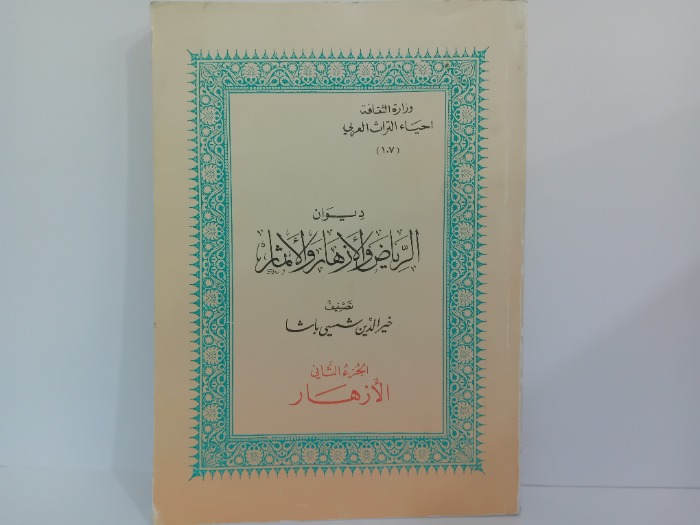 وزارة الثقافة
احياء التراث العربي
(١٠٧)
ديوان
الرياض والأزهار والأثمار
تصنيف
خير الدين شمسي باشا
الجزء الثاني
الأزهار